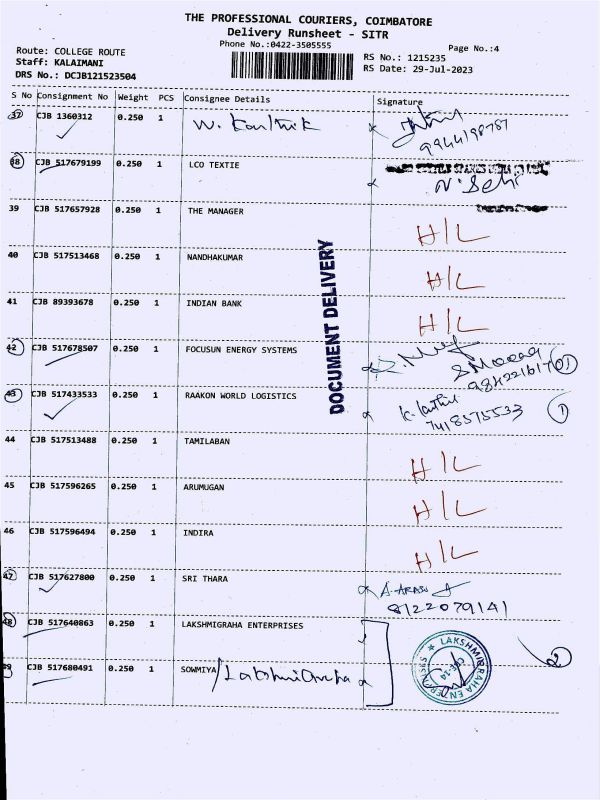 THE PROFESSIONAL COURIERS, COIMBATORE
Delivery Runsheet - SITR
Phone No.:0422-3505555
Page No.:4
Route: COLLEGE ROUTE
Staff: KALAIMANI
DRS No.: DCJB121523504
RS No.: 1215235
RS Date: 29-Jul-2023
S No Consignment No Weight PCS Consignee Details Signature
37 CJB 1360312 0.250 1 W. Karthik
9944198787
38 CJB 517679199 0.250 1 LCO TEXTIE
39 CJB 517657928 0.250 1 THE MANAGER H/L
40 CJB 517513468 0.250 1 NANDHAKUMAR H/L
41 CJB 89393678 0.250 1 INDIAN BANK H/L
DOCUMENT DELIVERY
42 CJB 517678507 0.250 1 FOCUSUN ENERGY SYSTEMS
43 CJB 517433533 0.250 1 RAAKON WORLD LOGISTICS K. Karthik
7418575533 1
44 CJB 517513488 0.250 1 TAMILABAN H/L
45 CJB 517596265 0.250 1 ARUMUGAN H/L
46 CJB 517596494 0.250 1 INDIRA H/L
47 CJB 517627800 0.250 1 SRI THARA
8122079141
48 CJB 517640863 0.250 1 LAKSHMIGRAHA ENTERPRISES
2
49 CJB 517680491 0.250 1 SOWMIYA
LAKSHMIGRAHA ENTERPRISES